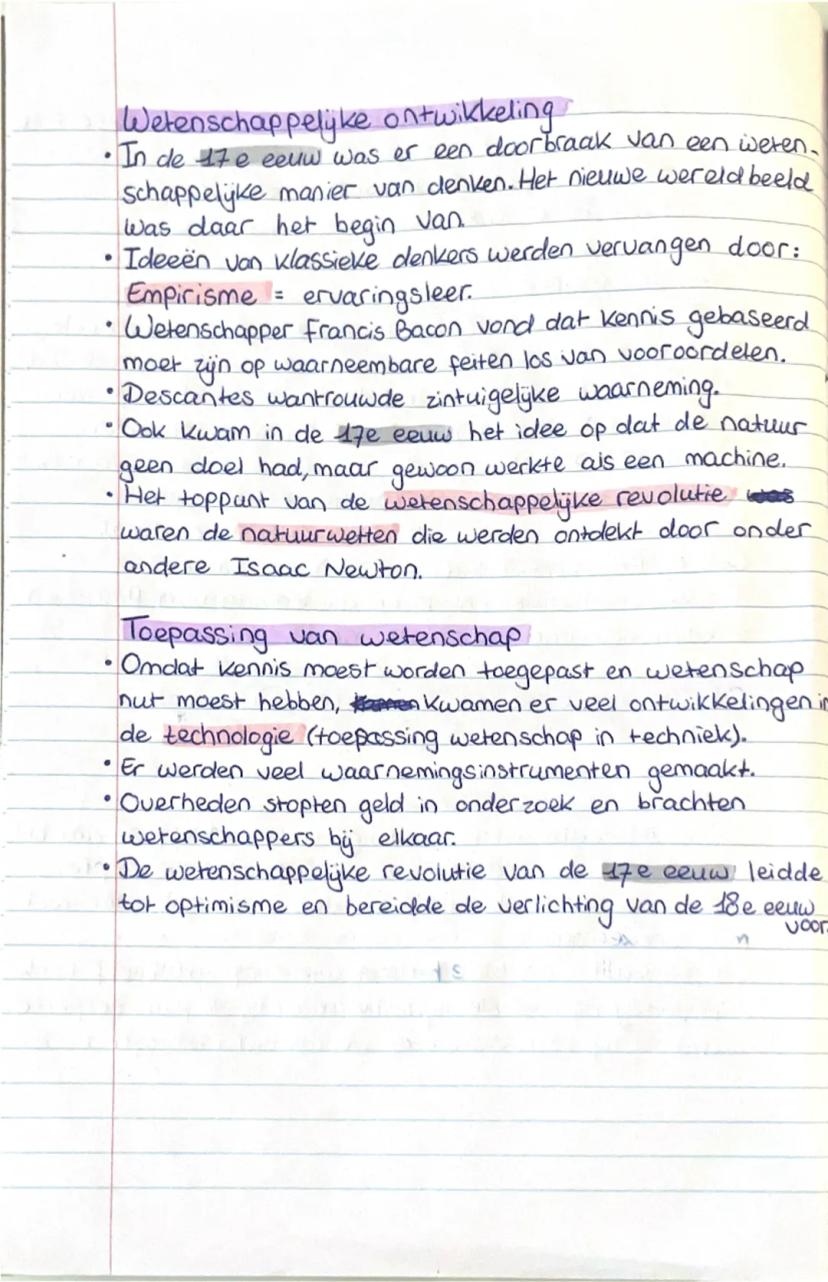 Wetenschappelijke ontwikkeling
• In de 17e eeuw was er een doorbraak van een weten-
schappelijke manier van denken. Het nieuwe wereldbeeld
was daar het begin van.
• Ideeën van klassieke denkers werden vervangen door:
Empirisme = ervaringsleer.
• Wetenschapper Francis Bacon vond dat kennis gebaseerd
moet zijn op waarneembare feiten los van vooroordelen.
• Descantes wantrouwde zintuigelijke waarneming.
• Ook kwam in de 17e eeuw het idee op dat de natuur
geen doel had, maar gewoon werkte als een machine.
• Het toppunt van de wetenschappelijke revolutie
waren de natuurwetten die werden ontdekt door onder
andere Isaac Newton.
Toepassing van wetenschap
• Omdat kennis moest worden toegepast en wetenschap
nut moest hebben, kwamen er veel ontwikkelingen in
de technologie (toepassing wetenschap in techniek).
• Er werden veel waarnemingsinstrumenten gemaakt.
• Overheden stopten geld in onderzoek en brachten
wetenschappers bij elkaar.
• De wetenschappelijke revolutie van de 17e eeuw leidde
tot optimisme en bereidde de verlichting van de 18e eeuw
voor.